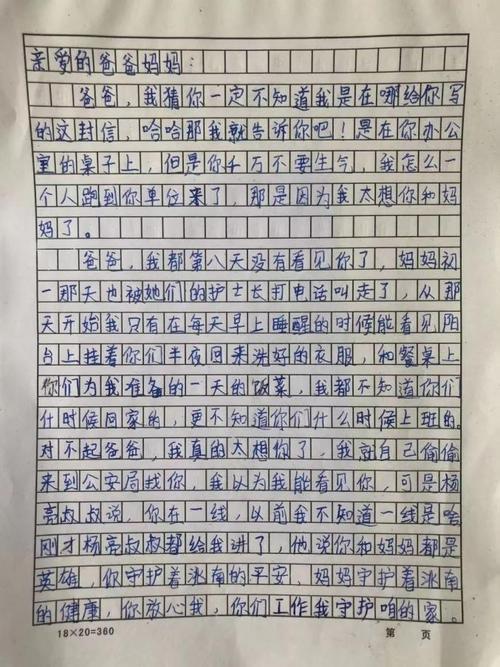 亲爱的爸爸妈妈：
爸爸，我猜你一定不知道我是在哪给你写
的这封信，哈哈那我就告诉你吧！是在你办公
室的桌子上，但是你千万不要生气，我怎么一
个人跑到你单位来了，那是因为我太想你和妈
妈了。
爸爸，我都第八天没有看见你了，妈妈初
一那天也被她们的护士长打电话叫走了，从那
天开始我只有在每天早上睡醒的时候能看见阳
台上挂着你们半夜回来洗好的衣服，和餐桌上
你们为我准备的一天的饭菜，我都不知道你们
什时候回家的，更不知道你们什么时候上班的。
对不起爸爸，我真的太想你了，我就自己偷偷
来到公安局找你，我以为我能看见你，可是杨
亮叔叔说，你在一线，以前我不知道一线是啥
刚才杨亮叔叔都给我讲了，他说你和妈妈都是
英雄，你守护着洮南的平安，妈妈守护着洮南
的健康，你放心我，你们工作我守护咱的家。
18×20=360 第 页